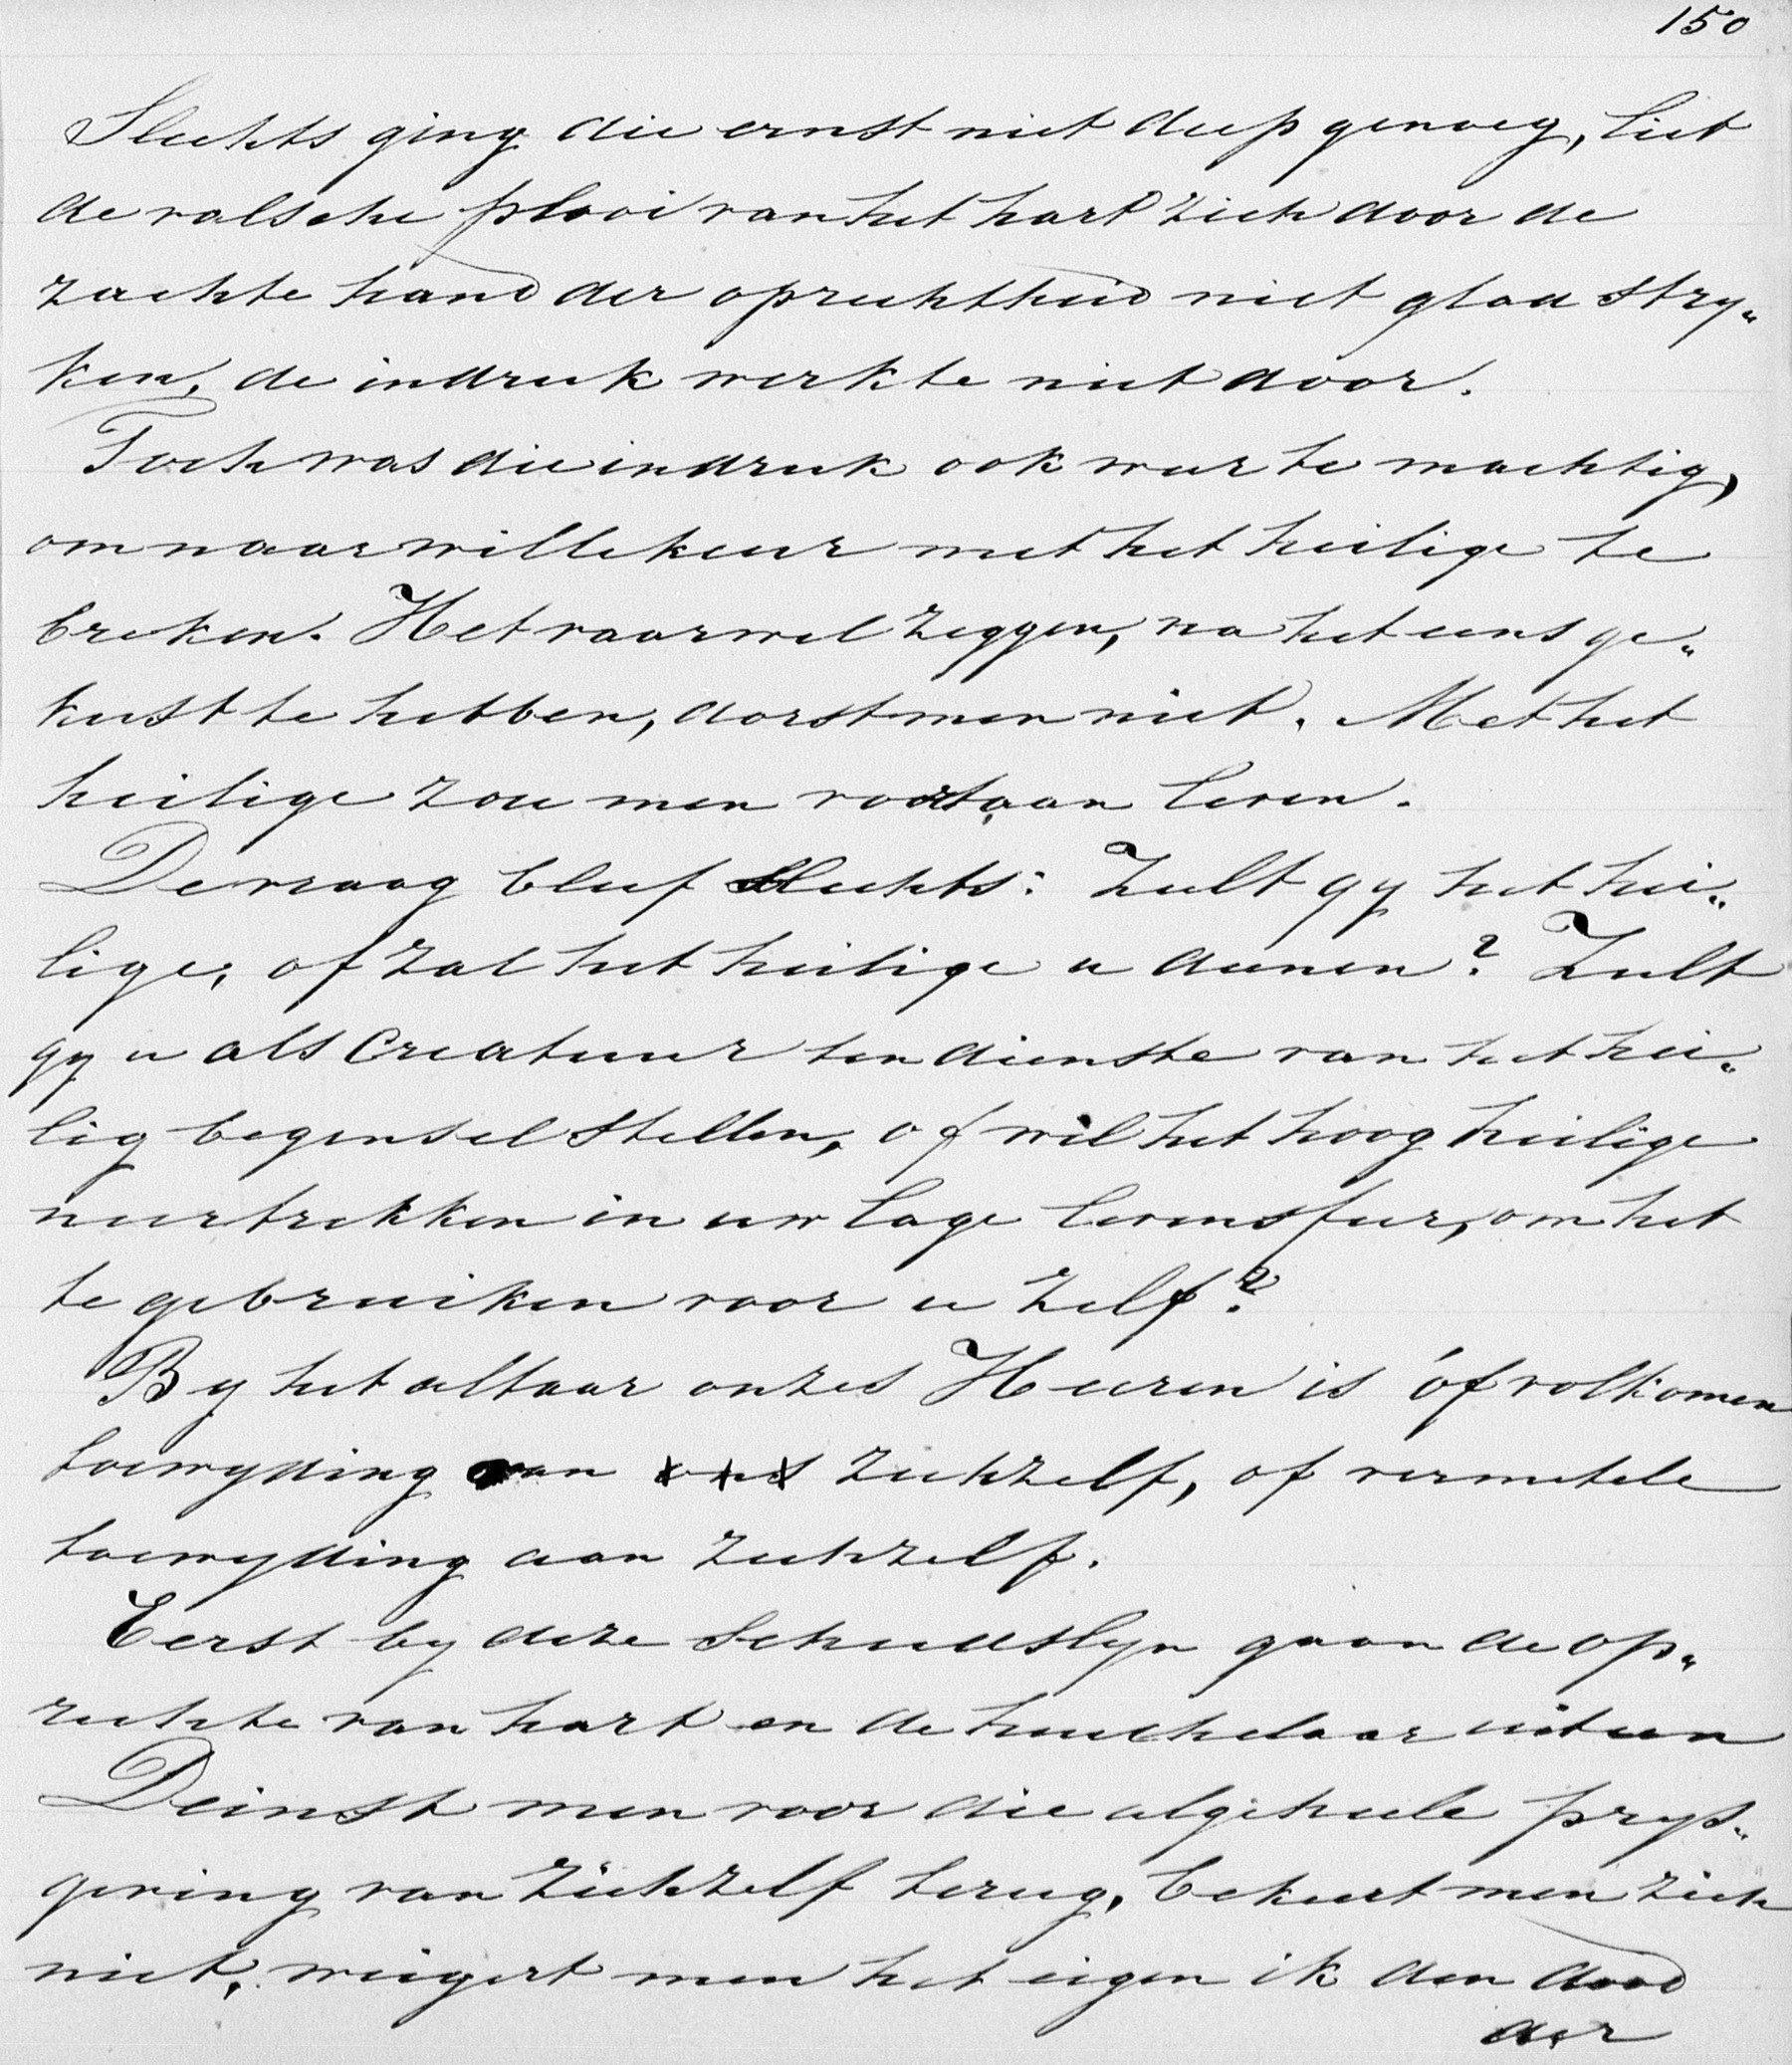 150
Slechts ging die ernst niet diep genoeg, liet
de valsche plooi van het hart zich door de
zachte hand der oprechtheid niet glad stry„
ken, de indruk werkte niet door.
Toch was die indruk ook weer te machtig,
om naar willekeur met het heilige te
breken. Het vaarwel zeggen, na het eens ge„
kust te hebben, dorst men niet. Met het
heilige zou men voortaan leven.
De vraag bleef slechts: Zult gy het hei„
lige, of zal het heilige u dienen? Zult
gy u als creatuur ten dienste van het hei„
lig beginsel stellen, of wil het hoog heilige
neertrekken in uw lage levensfeer, om het
te gebruiken voor u zelf?
By het altaar onzes Heeren is óf volkomen
toewyding van ons zichzelf, of vermetele
toewyding aan zichzelf.
Eerst by deze scheidslyn gaan de op„
rechte van hart en de huichelaar uiteen
Deinst men voor die algeheele prys„
geving van zichzelf terug, bekeert men zich
niet, weigert men het eigen ik den dood
der